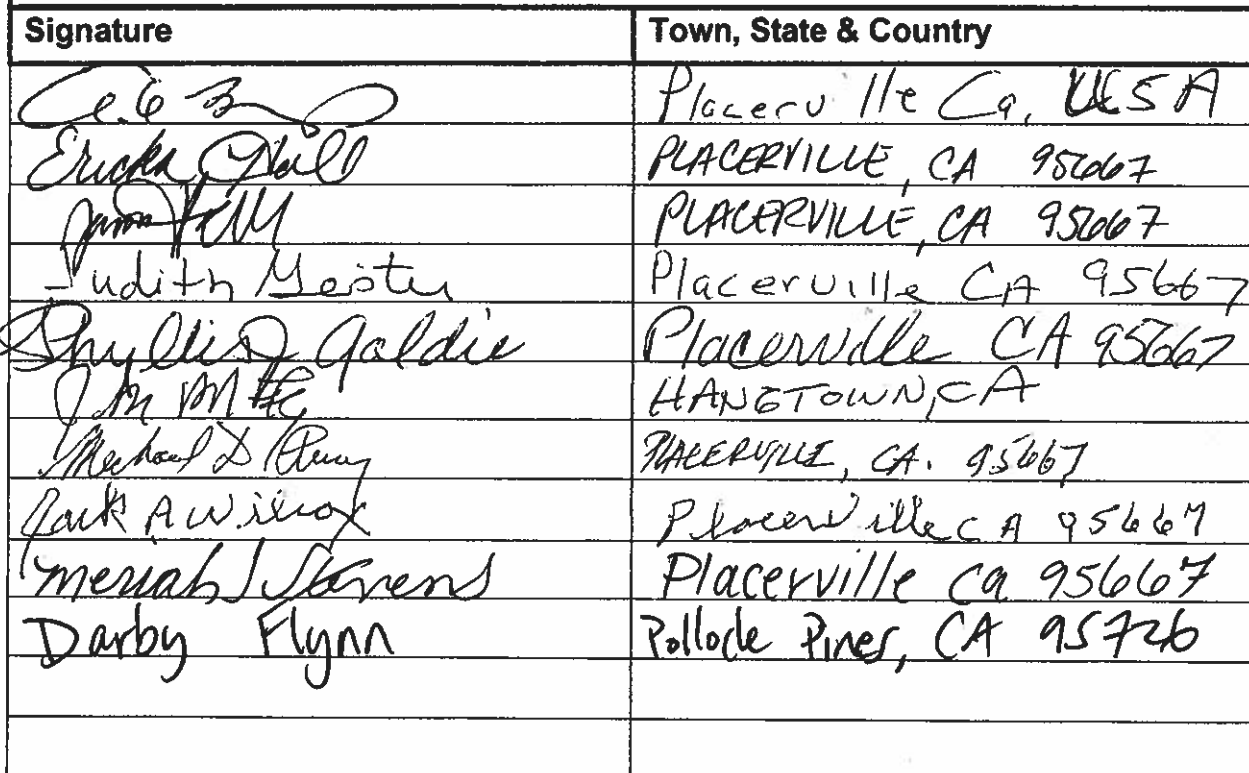 Signature Town, State & Country
Placerville Ca, USA
Ericka Hall PLACERVILLE, CA 95667
PLACERVILLE, CA 95667
Judith Placerville CA 95667
Phyllis Goldie Placerville CA 95667
HANGTOWN, CA
Michael D PLACERVILLE, CA. 95667
Jack A Wilcox Placerville CA 95667
Meriah J Stevens Placerville Ca 95667
Darby Flynn Pollock Pines, CA 95726